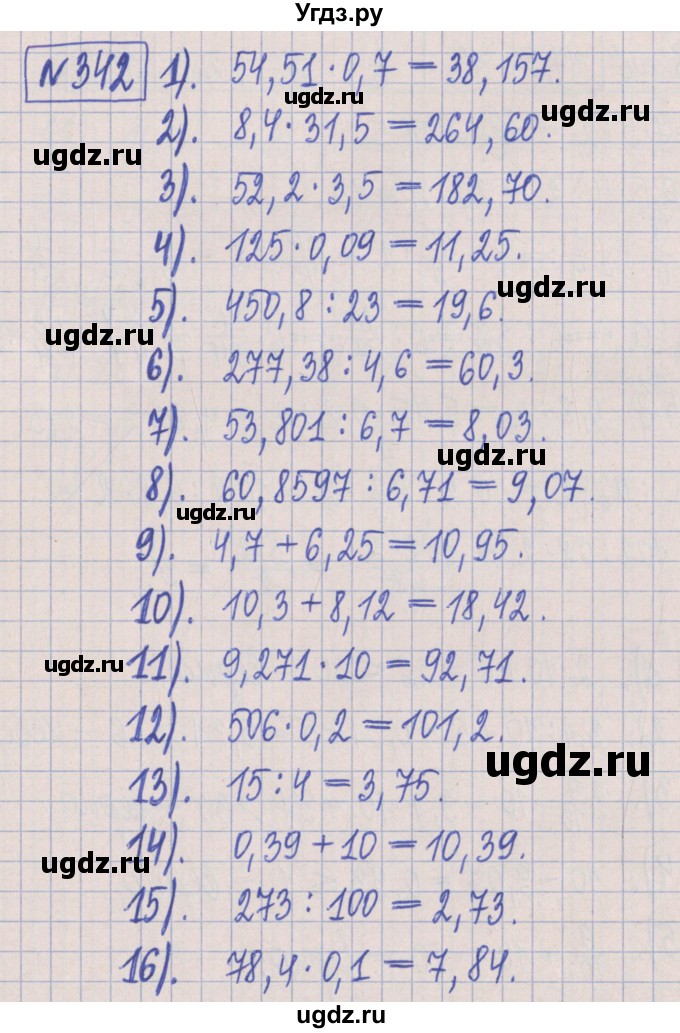 Угдз.ру
№342 1). 54,51·0,7=38,157.
ugdz.ru
2). 8,4·31,5=264,60.
ugdz.ru
ugdz.ru
3). 52,2·3,5=182,70.
4). 125·0,09=11,25.
ugdz.ru
5). 450,8:23=19,6.
ugdz.ru
6). 277,38:4,6=60,3.
7). 53,801:6,7=8,03.
ugdz.ru
8). 60,8597:6,71=9,07.
ugdz.ru
9). 4,7+6,25=10,95.
10). 10,3+8,12=18,42.
ugdz.ru
11). 9,271·10=92,71.
12). 506·0,2=101,2.
ugdz.ru
13). 15:4=3,75.
14). 0,39+10=10,39.
ugdz.ru
15). 273:100=2,73.
16). 78,4·0,1=7,84.
ugdz.ru